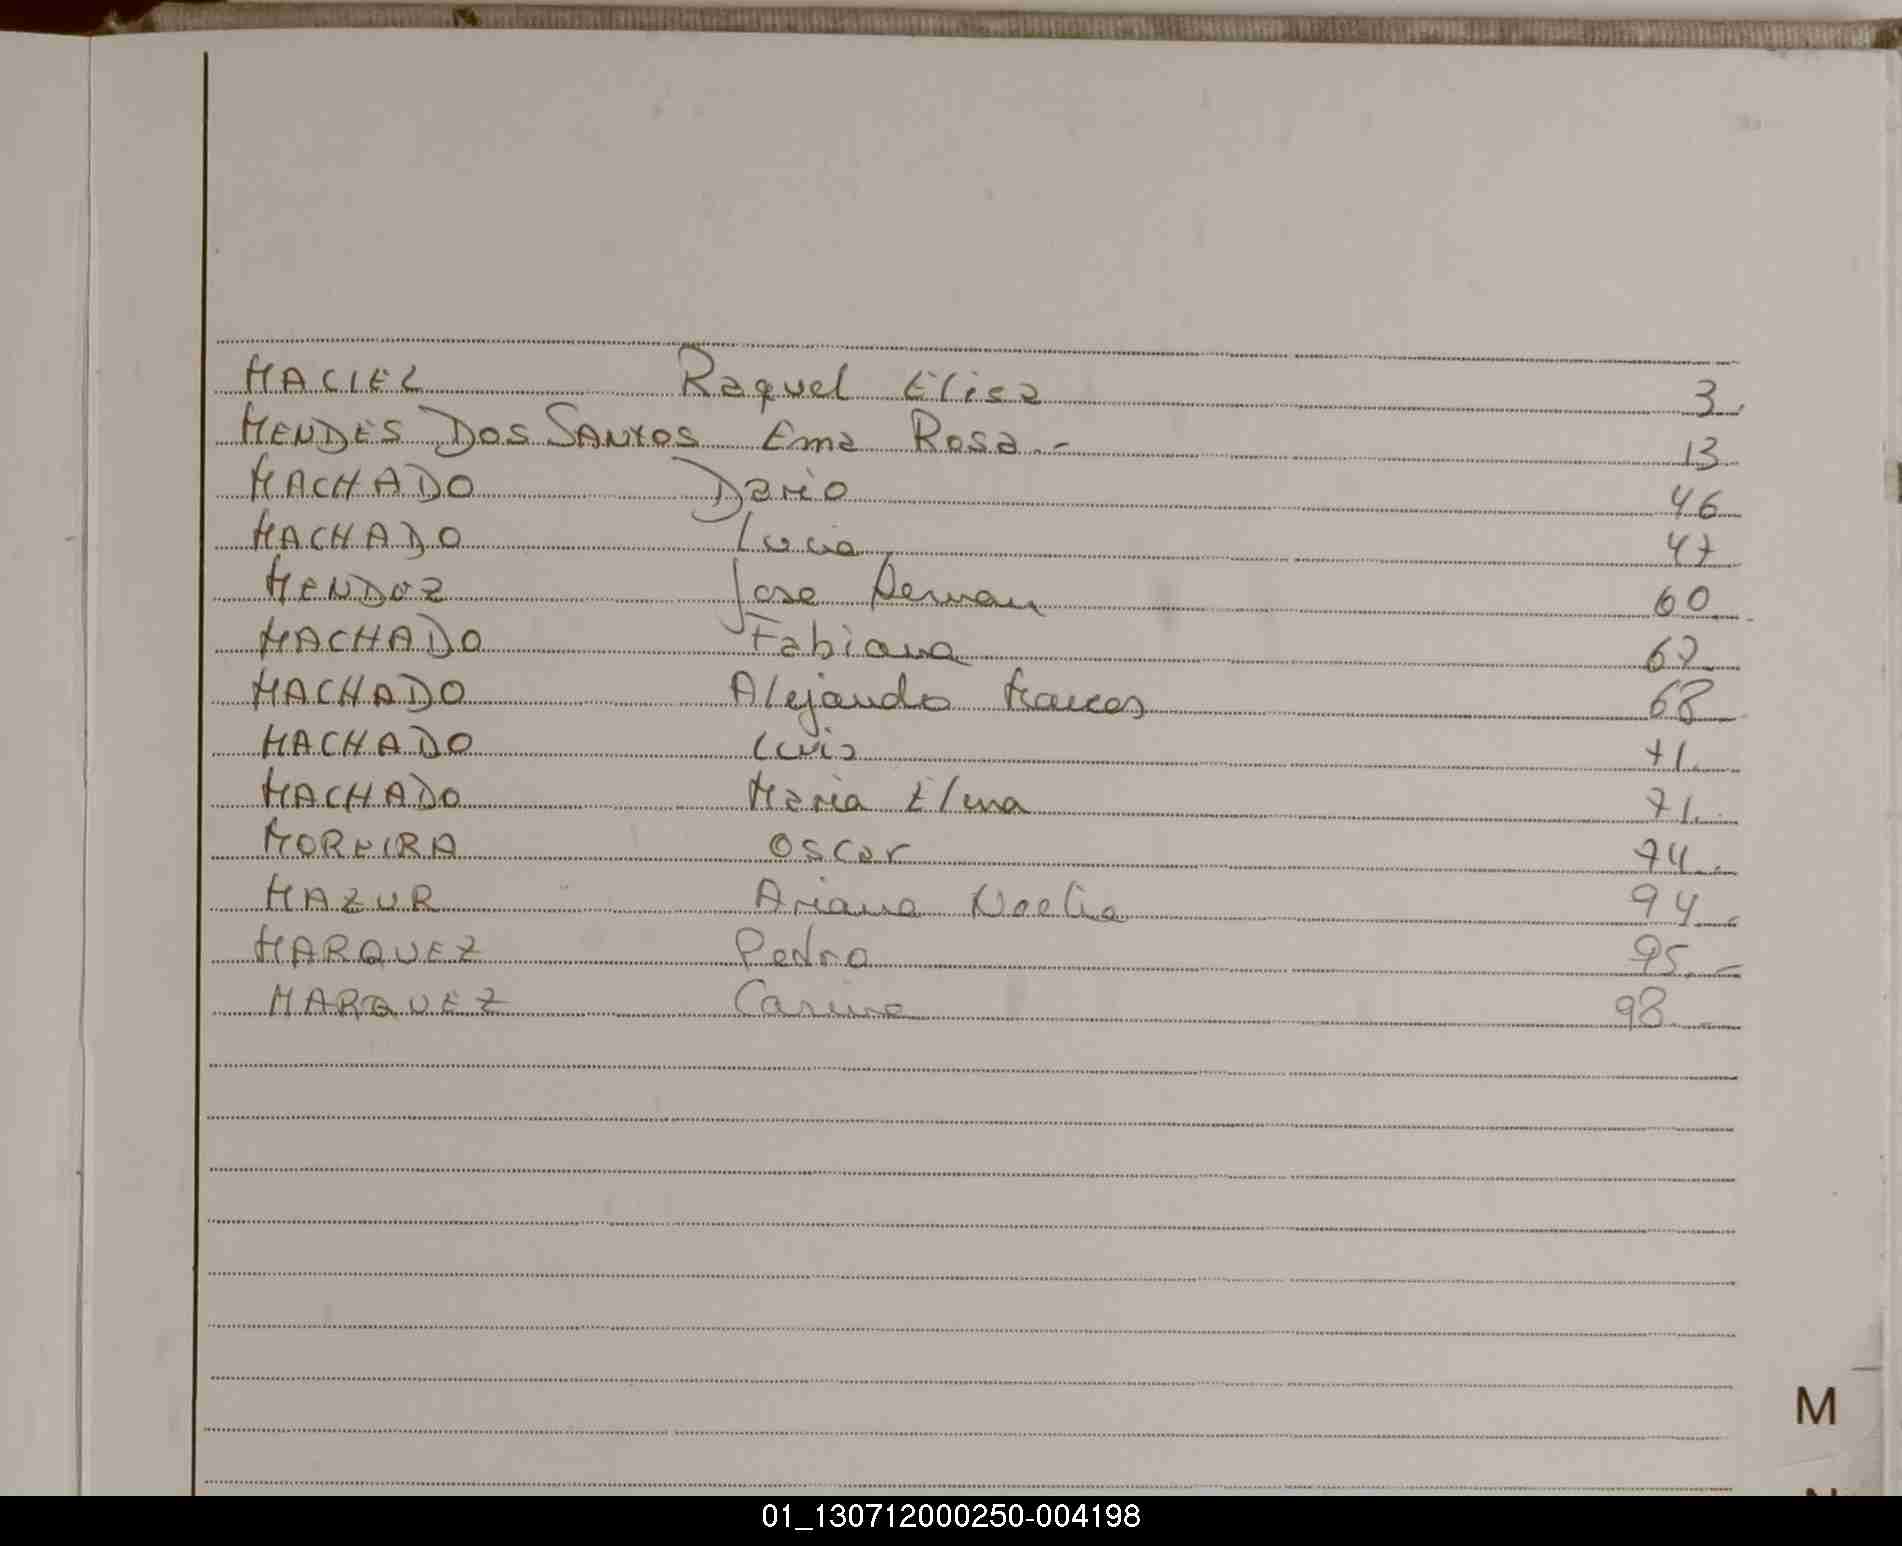 MACIEL Raquel Elisa 3.
MENDES DOS SANTOS Ema Rosa.- 13
MACHADO Dario 46
MACHADO Lucia 47
MENDOZ Jose Hernan 60
MACHADO Fabiana 67
MACHADO Alejandro Marcos 68
MACHADO Luis 71.
MACHADO Maria Elena 71.
MOREIRA Oscar 74.
MAZUR Ariana Noelia 94
MARQUEZ Pedro 95.-
MARQUEZ Carina 98
M
01_130712000250-004198